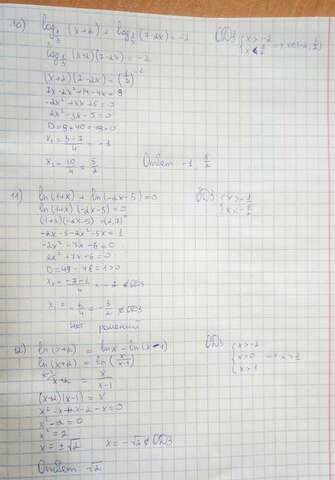 10) log_{1/3}(x+2) + log_{1/3}(7-2x) = -2 ОДЗ { x > -2
log_{1/3}(x+2)(7-2x) = -2
(x+2)(7-2x) = (1/3)^{-2}
7x-2x²+14-4x = 9
-2x²+3x+5=0
2x²-3x-5=0
D=9+40=49
x₁ = (3-7)/4 = -1
x₂ = 10/4 = 5/2 Ответ -1
11) ln(1+x) + ln(-2x-5) = 0 ОДЗ
ln(1+x)(-2x-5)=0
-2x-5-2x²-5x=1
-2x²-7x-6=0
2x²+7x+6=0
D=49-48=1>0
x₁ = = -2 ∉ ОДЗ
x₂ = -6/4 = -3/2 ∉ ОДЗ
Нет решений
12) ln(x+2) = lnx - ln(x-1) ОДЗ { x>-2
ln(x+2) = ln(x/(x-1)) x>0
x+2 = x/(x-1) x>1
(x+2)(x-1) = x
x²-x+2x-2-x=0
x²-2=0
x²=2
x=±√2 x=-√2 ∉ ОДЗ
Ответ √2